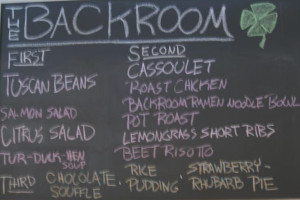 THE BACKROOM
FIRST
TUSCAN BEANS
SALMON SALAD
CITRUS SALAD
TUR-DUCK-HEN
SOUP
SECOND
CASSOULET
ROAST CHICKEN
BACKROOM RAMEN NOODLE BOWL
POT ROAST
LEMONGRASS SHORT RIBS
BEET RISOTTO
THIRD
CHOCOLATE
SOUFFLE
RICE
PUDDING
STRAWBERRY-
RHUBARB PIE